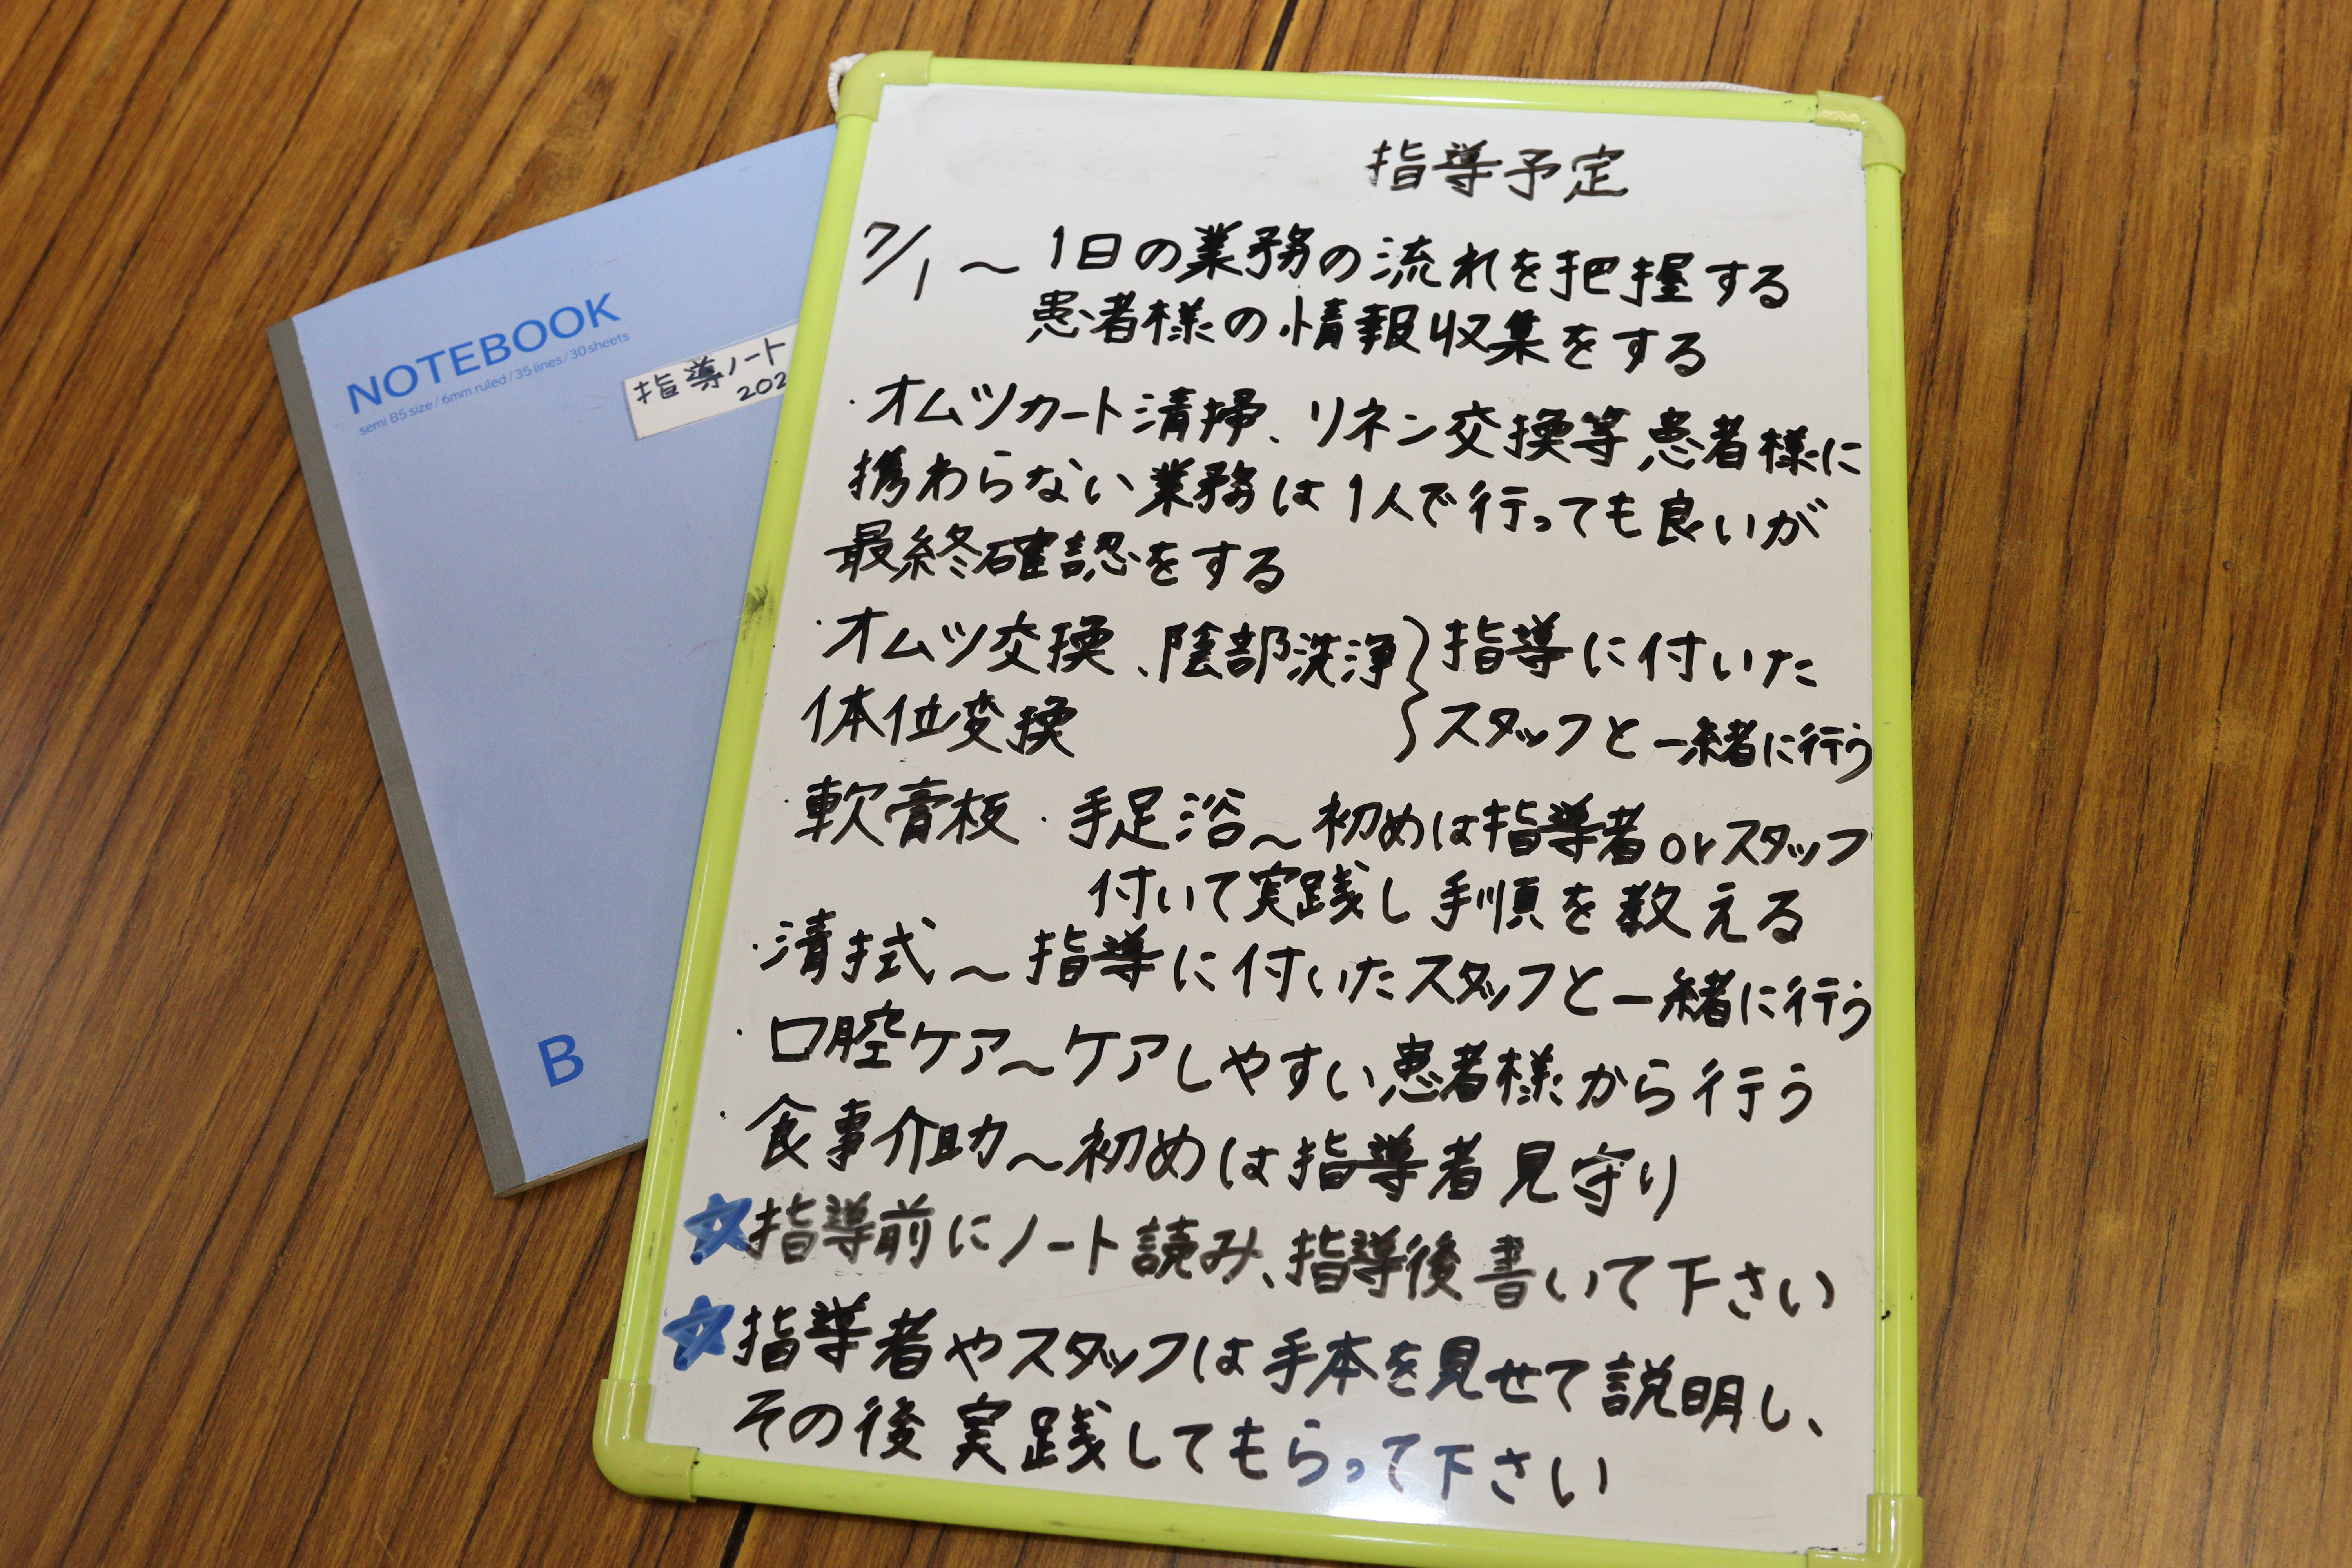 NOTEBOOK
semi B5 size / 6mm ruled / 35 lines / 30 sheets
指導ノート
202
B
指導予定
7/1 〜 1日の業務の流れを把握する
患者様の情報収集をする
・オムツカート清掃、リネン交換等患者様に
携わらない業務は1人で行っても良いが
最終確認をする
・オムツ交換、陰部洗浄 } 指導に付いた
体位変換 } スタッフと一緒に行う
・軟膏板・手足浴〜初めは指導者orスタッフ
付いて実践し手順を教える
・清拭〜指導に付いたスタッフと一緒に行う
・口腔ケア〜ケアしやすい患者様から行う
・食事介助〜初めは指導者見守り
☆指導前にノート読み、指導後書いて下さい
☆指導者やスタッフは手本を見せて説明し、
その後実践してもらって下さい